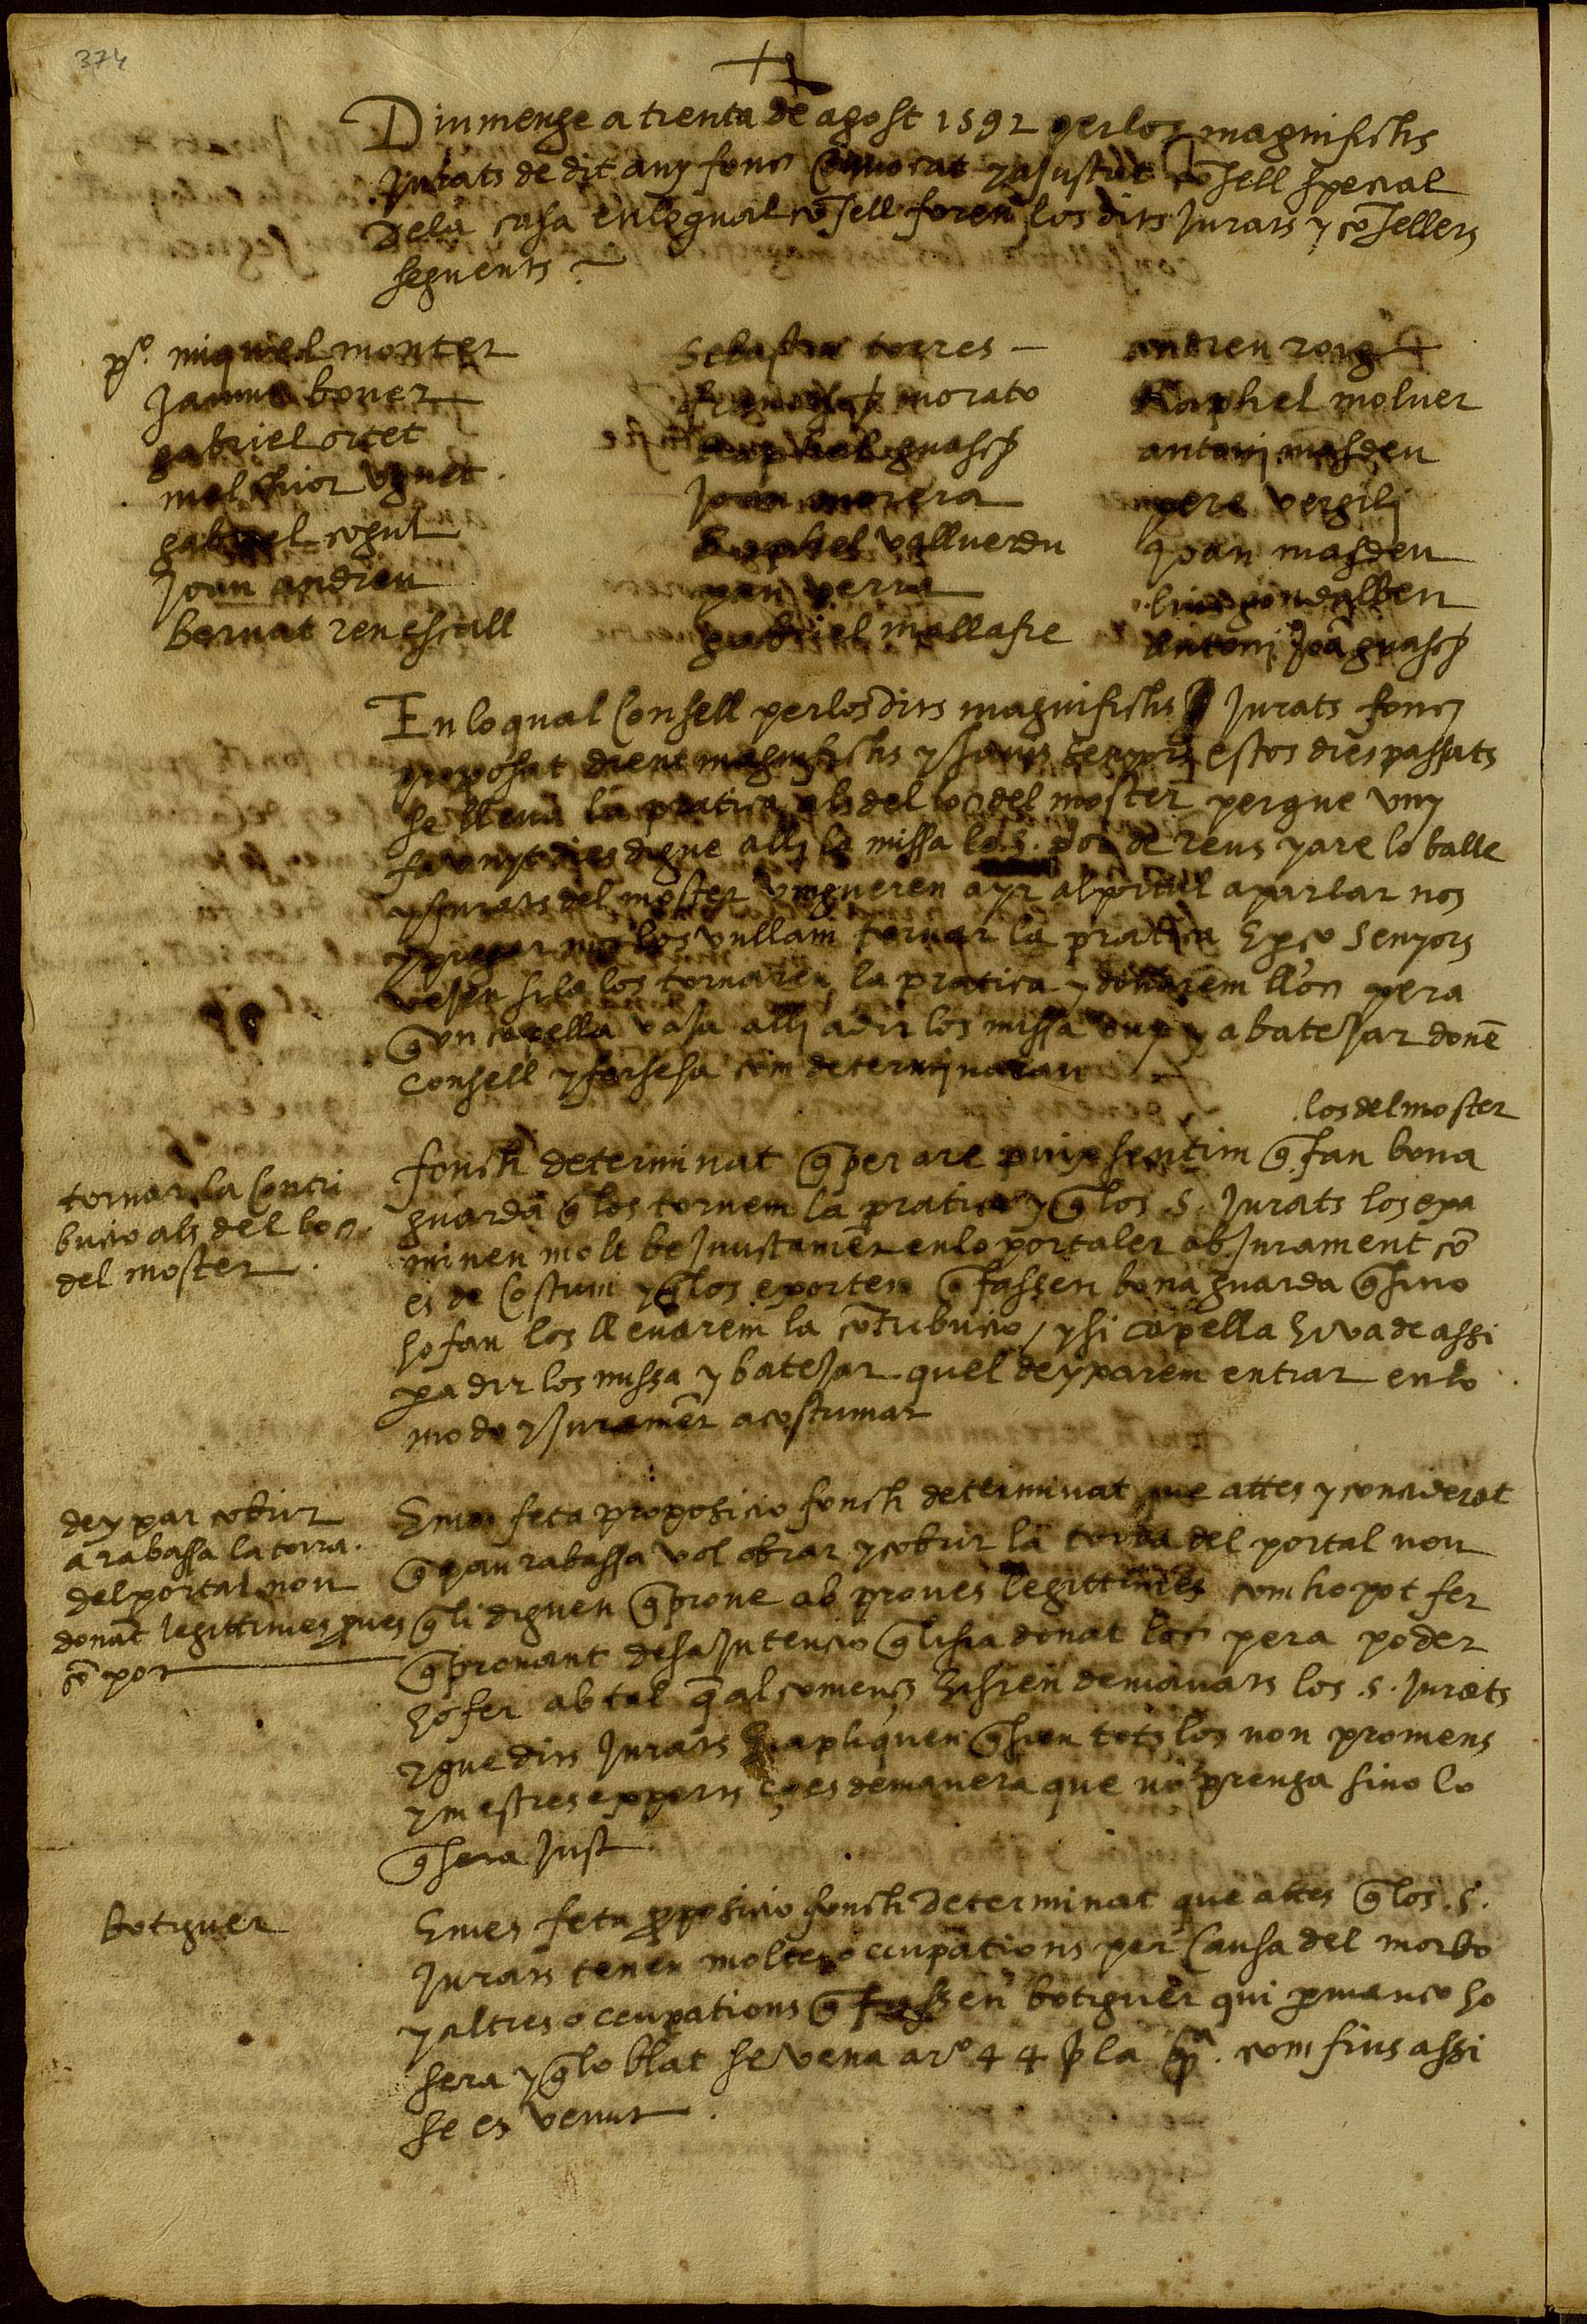 374
Diumenge a trenta de agost 1592 per los magnifichs
Jurats de dit any fonc convocat y ajustat cõsell special
dela casa en lo qual cõsell foren los dits Jurats y cõsellers
seguents
pº. miquel monter
Jaume bover
gabriel ortet
melchior uguet
gabriel cogul
Joan andreu
bernat renescall
Sebastia torres
morato
guasch
Joan morera
Raphel vallverdu
pau
gabriel mallafre
andreu roig
Raphel moluer
antonj masdeu
pere vergilj
Joan masdeu
gondalbeu
Antonj Joã guasch
En lo qual Consell per los dits magnifichs Jurats fonc
proposat dient magnifichs y savis senyors estos dies passats
se lleva la pratica als del loc del moster perque vuy
fa vuyt dies digue allj la missa lo .S. de reus y are lo balle
y Jurats del moster vingueren ayr al portal a parlar nos
y pregar nos los vullam tornar la pratica Eperço senyors
vejen si la los tornarem la pratica y donarem lloc pera
q̃ un capella vaja allj a dir los missa vuy y a batejar donẽ
consell y farsesa com determinaran
los del moster
fonch determinat q̃ per are puix sentim q̃ fan bona
guarda q̃ los tornem la pratica y q̃ los .S. Jurats los exa
minen molt be Juntament en lo portaler ab Jurament cõ
es de Costum y q̃ los exorten q̃ fassen bona guarda q̃ sino
ho fan los llevarem la cõtribucio, y si capella hi va de assi
pa dir los missa y batejar quel deyxarem entrar en lo
modo y Juramẽt acostumat
tornar la Contri
bucio als del loc
del moster
Emes feta proposicio fonch determinat que attes y considerat
q̃ pau rabassa vol obrar y cobrir la torra del portal nou
q̃ li diguen q̃ prove ab proves legittimes com ho pot fer
q̃ provant de sa Intencio q̃ li sia donat loc pera poder
ho fer ab tal q̃ al comenc hi sien demanats los .S. Jurats
y que dits Jurats hi apliquen q̃ sien tots los non promens
y mestres experts ço es de manera que no prenga sino lo
q̃ sera Just
deyxar cobrir
a rabassa la torra
del portal nou
donãt legittimes proves
cõ pot
Emes feta proposicio fonch determinat que attes q̃ los .S.
Jurats tenen moltes occupations per Causa del morbo
y altres occupations q̃ fassen botiguer qui permanco ho
sera y q̃ lo blat se vena a rº 44 ₷ la qrª. com fins assi
se es venut
botiguer